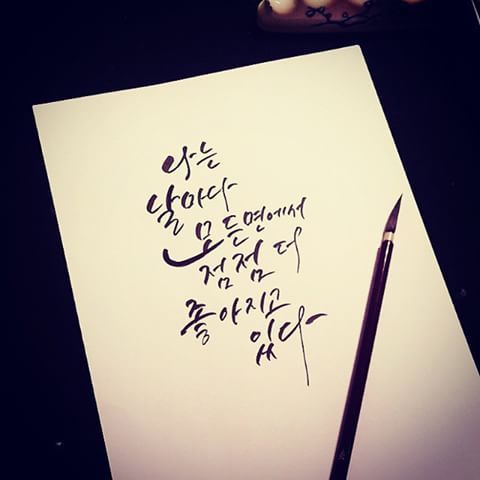 나는
날마다
모든면에서
점점 더
좋아지고
있다